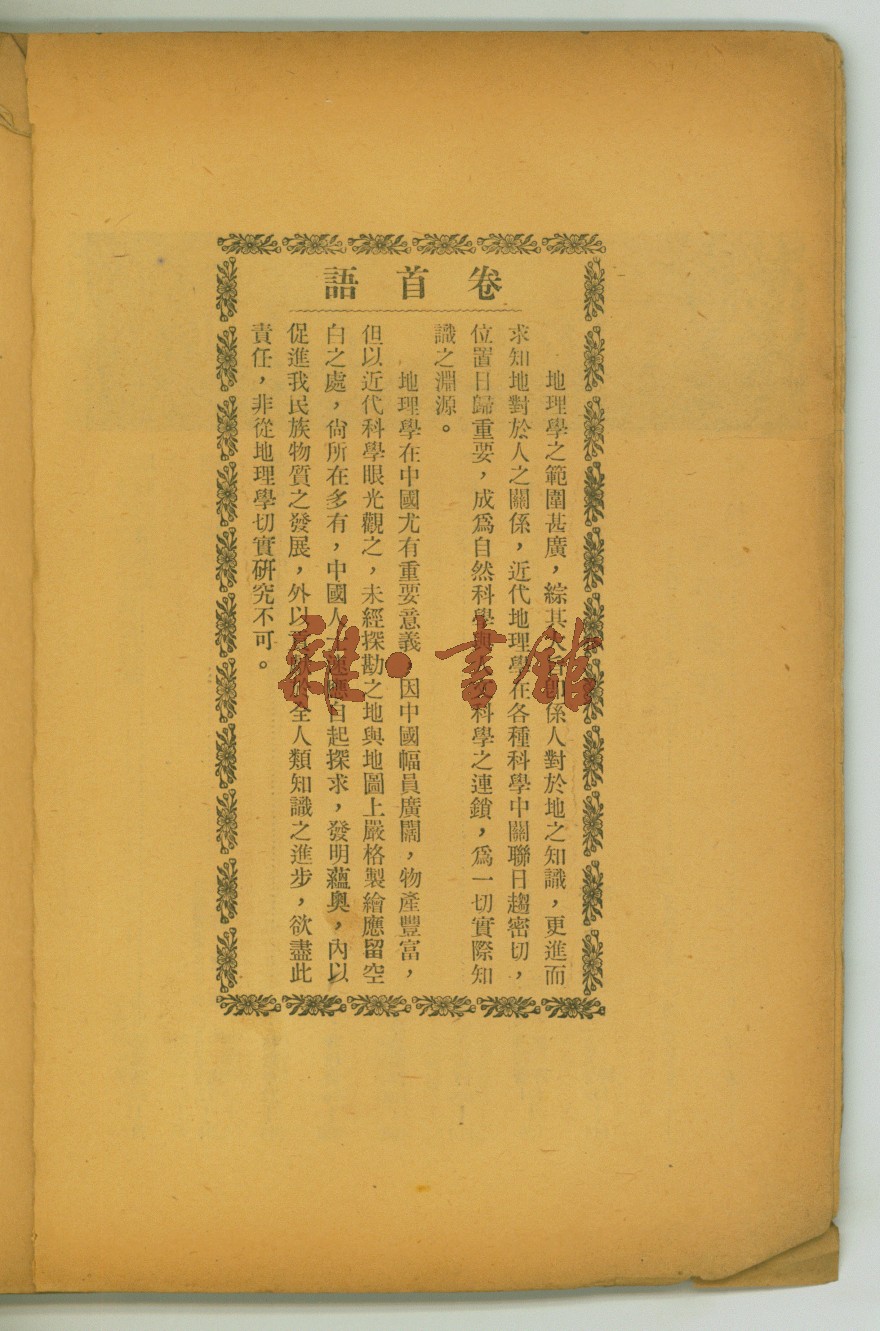 卷首語
地理學之範圍甚廣，綜其大旨即係人對於地之知識，更進而
求知地對於人之關係，近代地理學在各種科學中關聯日趨密切，
位置日歸重要，成爲自然科學與人文科學之連鎖，爲一切實際知
識之淵源。
地理學在中國尤有重要意義。因中國幅員廣闊，物產豐富，
但以近代科學眼光觀之，未經探勘之地與地圖上嚴格製繪應留空
白之處，尙所在多有，中國人 自起探求，發明蘊奧，內以
促進我民族物質之發展，外以 全人類知識之進步，欲盡此
責任，非從地理學切實研究不可。
雜·書館